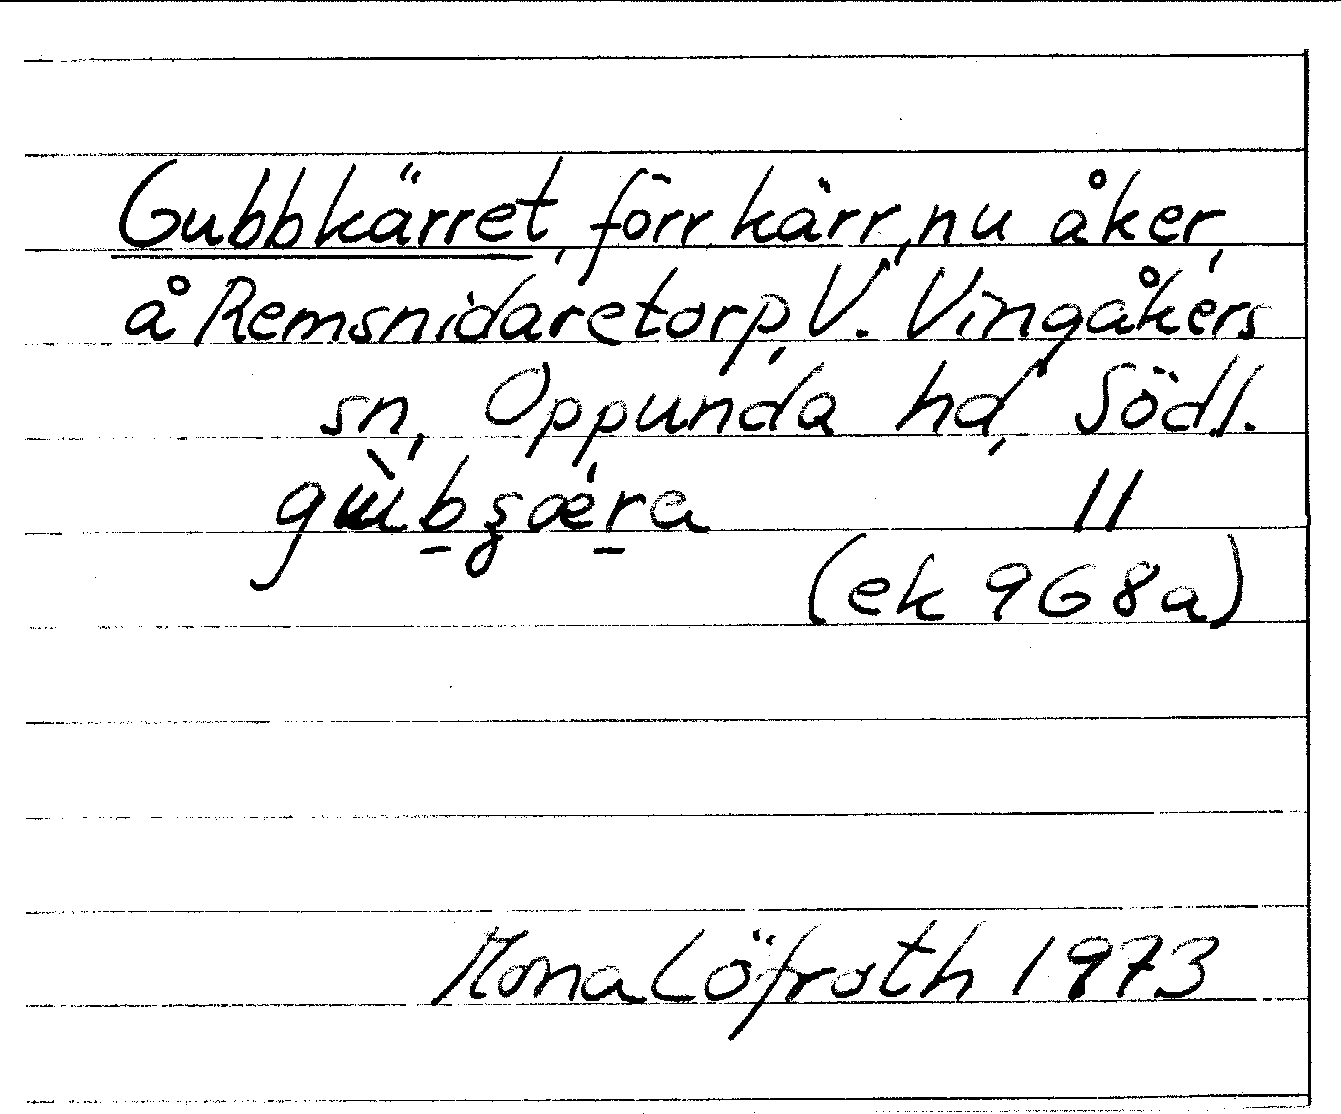 Gubbkärret, förr kärr, nu åker,
å Remsnidaretorp, V. Vingåkers
sn, Oppunda hd, Södl.
11
(ek 968a)
Mona Löfroth 1973